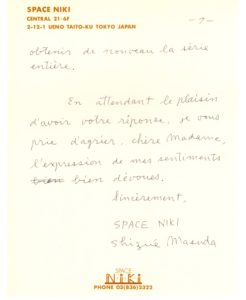 SPACE NIKI
CENTRAL 21-6F
2-12-1 UENO TAITO-KU TOKYO JAPAN
- 2 -
obtenir de nouveau la série
entière.
En attendant le plaisir
d'avoir votre réponse, je vous
prie d'agréer, chère Madame,
l'expression de mes sentiments
bien dévoués.
Sincèrement,
SPACE NIKI
Shizué Masuda
SPACE
NiKi
PHONE 03(836)2322